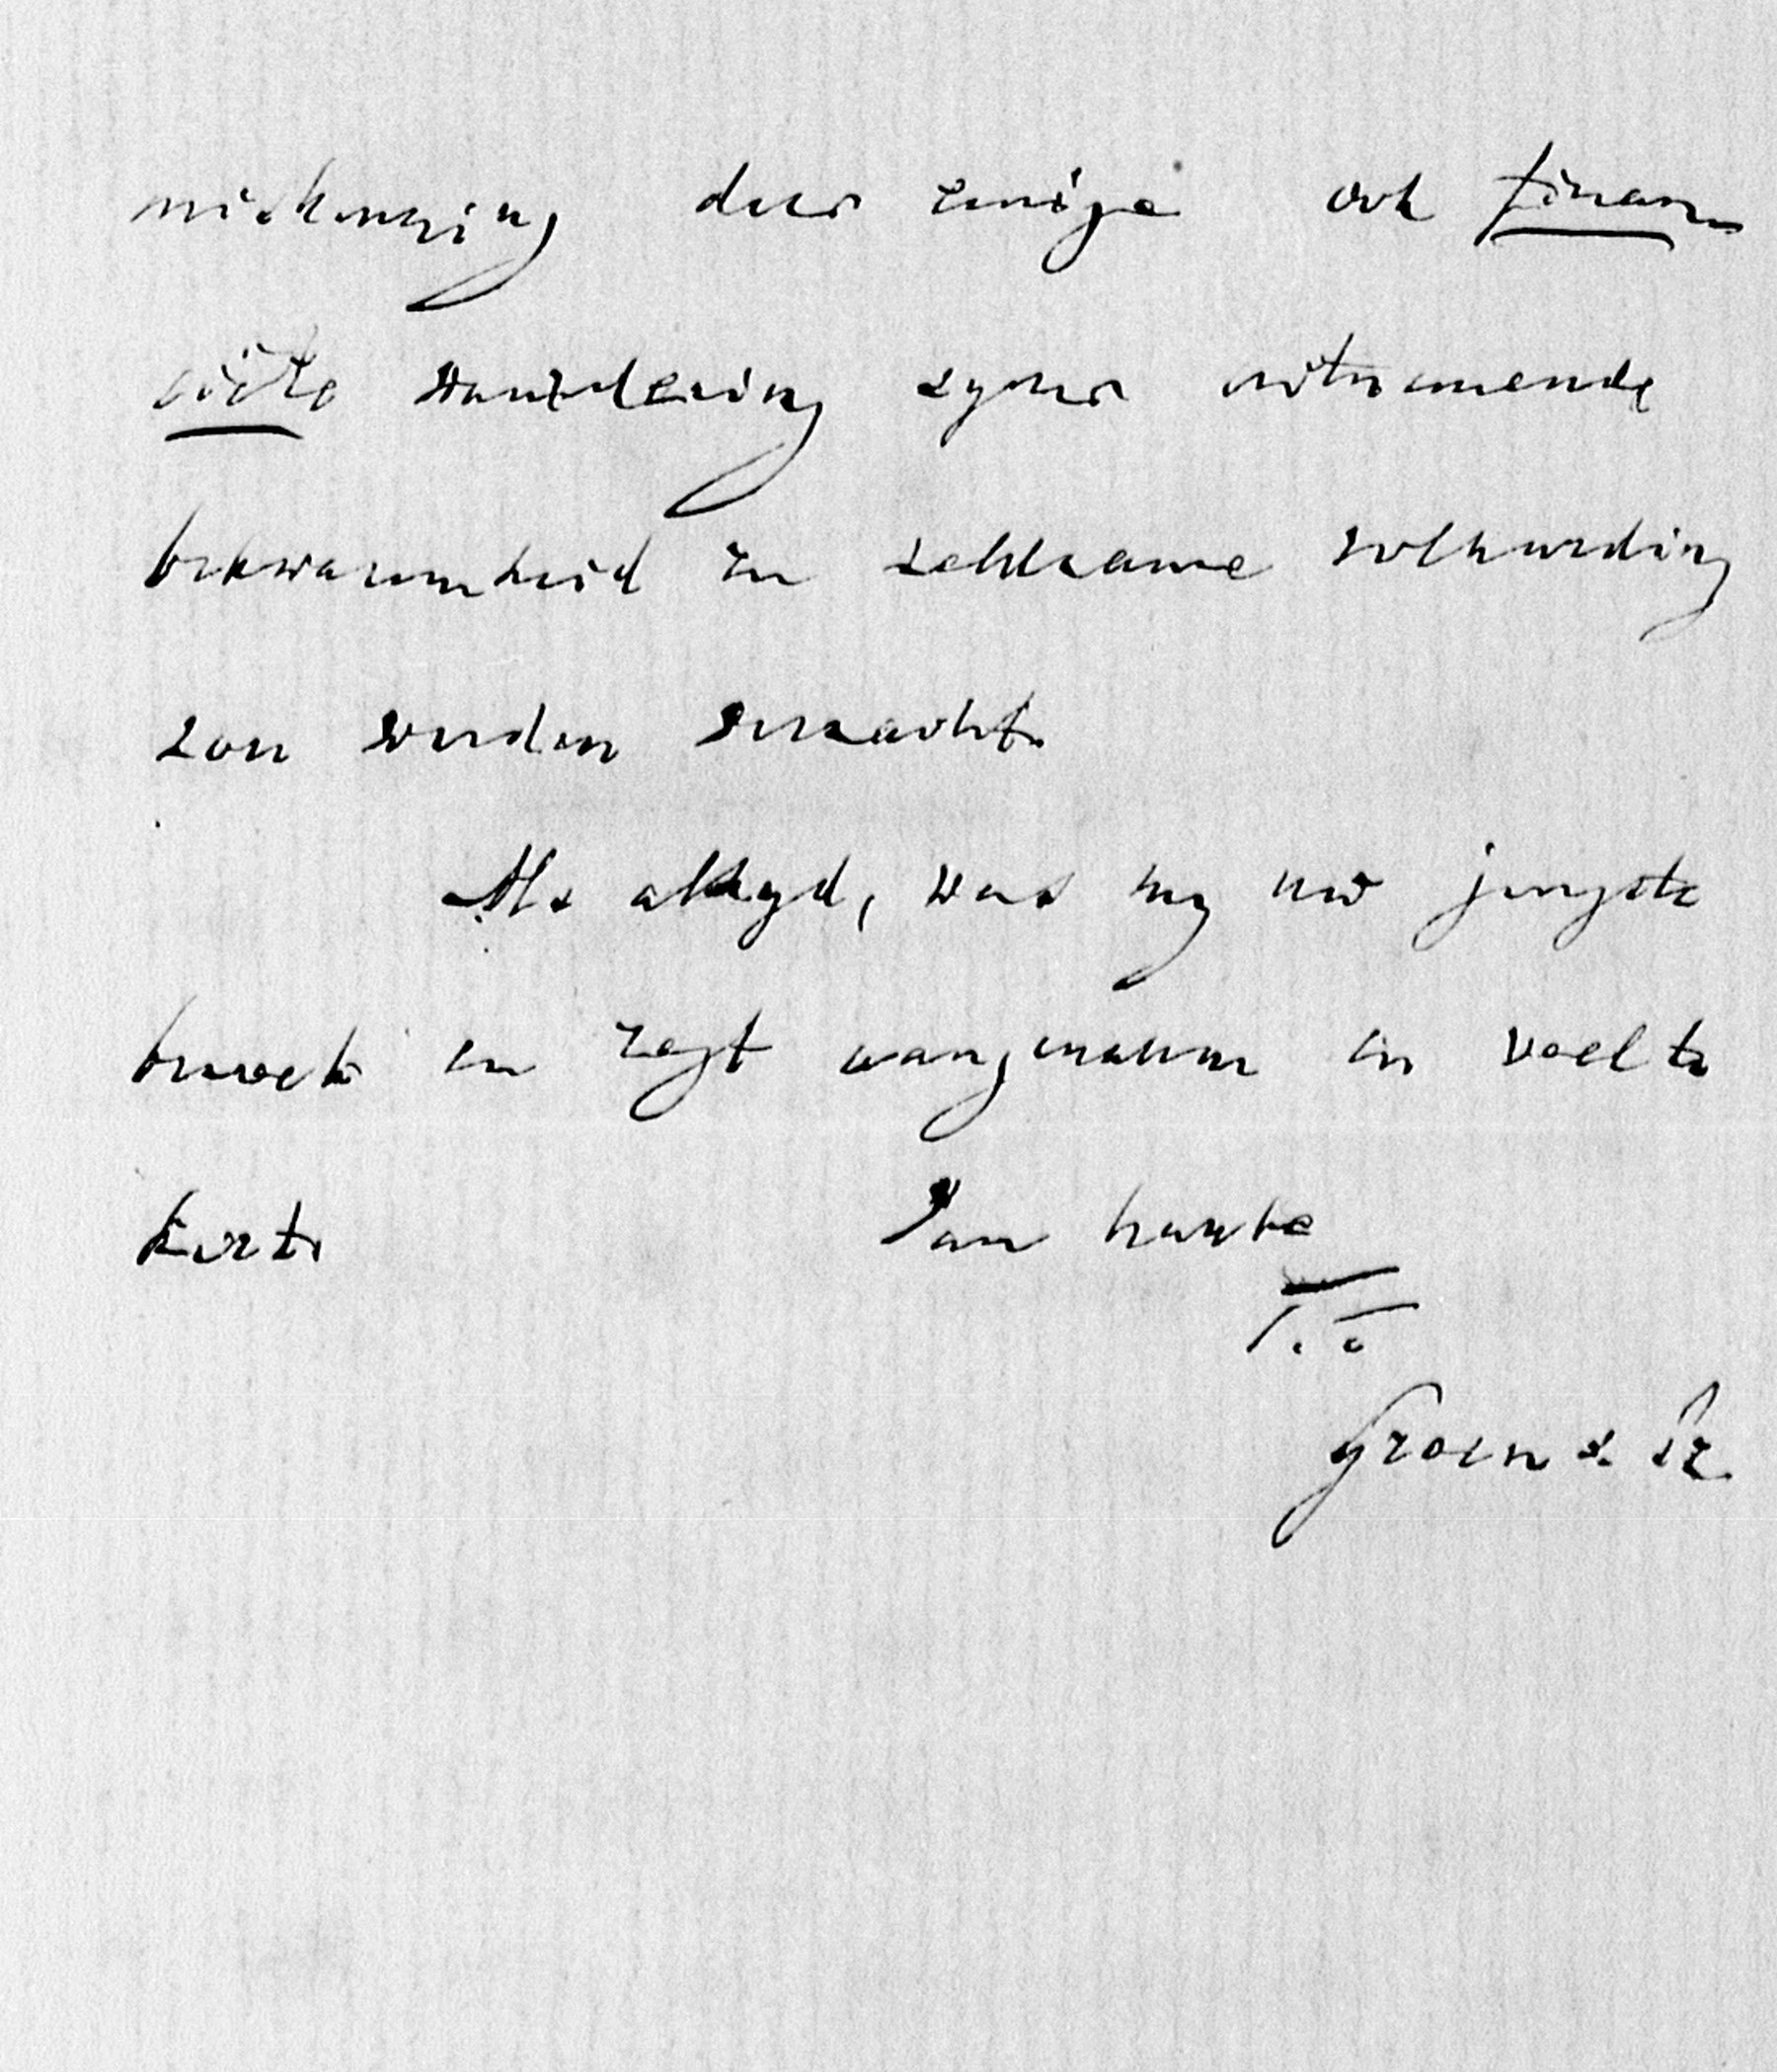 miskenning door eenige ook finan
ciële waardering zyner uitnemende
bekwaamheid en zeldzame volharding
zou worden verzacht.
Als altyd, was my uw jongste
bezoek en regt aangenaam en veel te
kort.
Van harte
T.T.
Groen v. Pr.